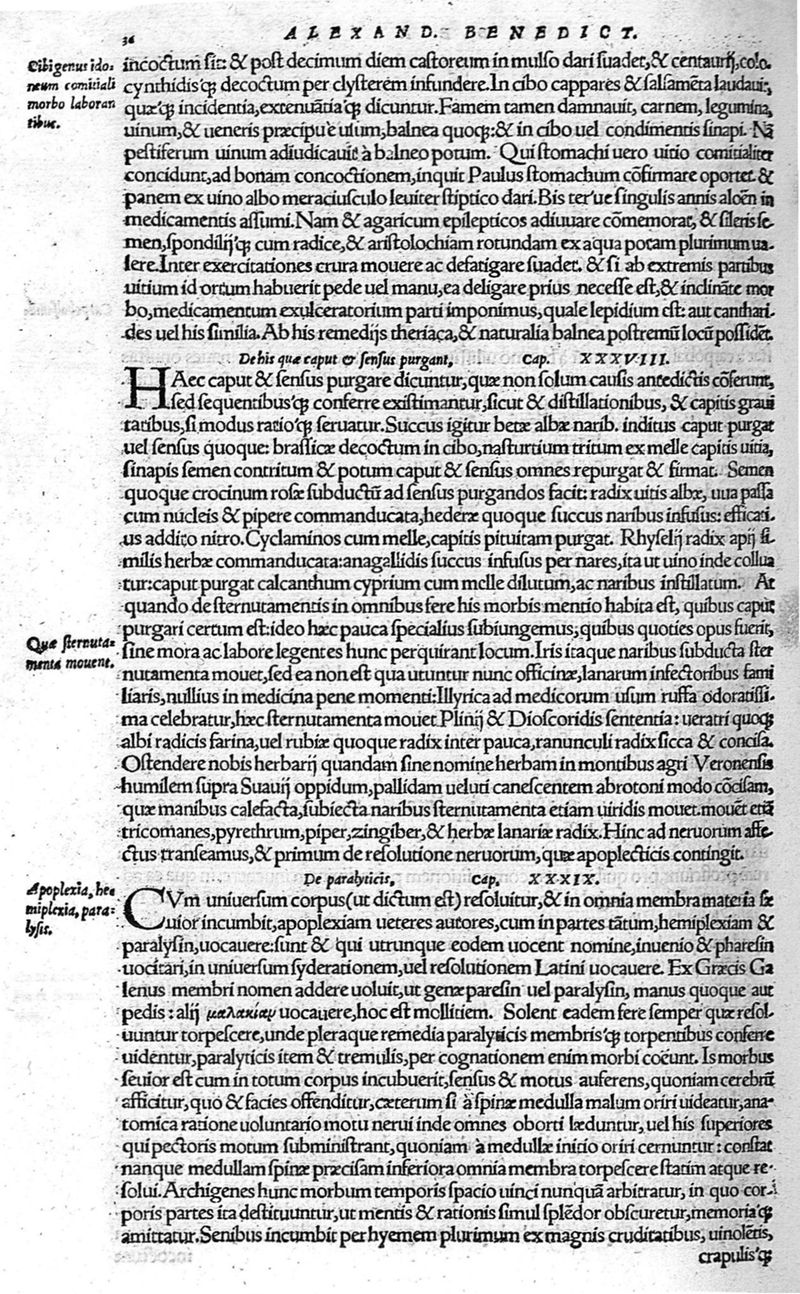 36 ALEXAND. BENEDICT.
Cibi genus ido-
neum comitiali
morbo laboran
tibus.
incoctum sit: & post decimum diem castoreum in mulso dari suadet, & centaurij, colo,
cynthidis'q; decoctum per clysterem infundere. In cibo cappares & salsamēta laudauit,
quæ'q; incidentia, extenuātia'q; dicuntur. Famem tamen damnauit, carnem, legumina,
uinum, & ueneris præcipuè usum, balnea quoq;: & in cibo uel condimentis sinapi. Nā
pestiferum uinum adiudicauit à balneo potum. Qui stomachi uero uitio comitialiter
concidunt, ad bonam concoctionem, inquit Paulus stomachum cōfirmare oportet. &
panem ex uino albo meraciusculo leuiter stiptico dari. Bis ter'ue singulis annis aloēn in
medicamentis assumi. Nam & agaricum epilepticos adiuuare cōmemorat, & sileris se-
men, spondilij'q; cum radice, & aristolochiam rotundam ex aqua potam plurimum ua-
lere. Inter exercitationes crura mouere ac defatigare suadet. & si ab extremis partibus
uitium id ortum habuerit pede uel manu, ea deligare prius necesse est, & inclināte mor
bo, medicamentum exulceratorium parti imponimus, quale lepidium est: aut canthari-
des uel his similia. Ab his remedijs theriaca, & naturalia balnea postremū locū possidēt.
De his quæ caput & sensus purgant, Cap. XXXVIII.
HAec caput & sensus purgare dicuntur, quæ non solum causis antedictis cōferunt,
sed sequentibus'q; conferre existimantur, sicut & distillationibus, & capitis graui
tatibus, si modus ratio'q; seruatur. Succus igitur betæ albæ narib. inditus caput purgat
uel sensus quoque: brassicæ decoctum in cibo, nasturtium tritum ex melle capitis uitia,
sinapis semen contritum & potum caput & sensus omnes repurgat & firmat. Semen
quoque crocinum rosæ subductū ad sensus purgandos facit: radix uitis albæ, uua passa
cum nucleis & pipere commanducata, hederæ quoque succus naribus infusus: efficati-
us addito nitro. Cyclaminos cum melle, capitis pituitam purgat. Rhyselij radix apij si-
milis herbæ commanducata: anagallidis succus infusus per nares, ita ut uino inde collua
tur: caput purgat calcanthum cyprium cum melle dilutum, ac naribus instillatum. At
quando de sternutamentis in omnibus fere his morbis mentio habita est, quibus caput
Quæ sternuta-
menta mouent.
purgari certum est: ideo hæc pauca specialius subiungemus, quibus quoties opus fuerit,
sine mora ac labore legentes hunc perquirant locum. Iris itaque naribus subducta ster
nutamenta mouet, sed ea non est qua utuntur nunc officinæ, lanarum infectoribus fami
liaris, nullius in medicina pene momenti: Illyrica ad medicorum usum ruffa odoratissi-
ma celebratur, hæc sternutamenta mouet Plinij & Dioscoridis sententia: ueratri quoq;
albi radicis farina, uel rubiæ quoque radix inter pauca, ranunculi radix sicca & concisa.
Ostendere nobis herbarij quandam sine nomine herbam in montibus agri Veronensis
humilem supra Suauij oppidum, pallidam ueluti canescentem abrotoni modo cōcisam,
quæ manibus calefacta, subiecta naribus sternutamenta etiam uiridis mouet. mouēt etiā
tricomanes, pyrethrum, piper, zingiber, & herbæ lanariæ radix. Hinc ad neruorum affe-
ctus transeamus, & primum de resolutione neruorum, quæ apoplecticis contingit.
De paralyticis, Cap. XXXIX.
Apoplexia, he
miplexia, para-
lysis.
CVm uniuersum corpus (ut dictum est) resoluitur, & in omnia membra materia sæ
uior incumbit, apoplexiam ueteres autores, cum in partes tātum, hemiplexiam &
paralysin, uocauere: sunt & qui utrunque eodem uocent nomine, inuenio & pharesin
uocitari, in uniuersum syderationem, uel resolutionem Latini uocauere. Ex Græcis Ga
lenus membri nomen addere uoluit, ut genæ paresin uel paralysin, manus quoque aut
pedis: alij μαλακίαν uocauere, hoc est mollitiem. Solent eadem fere semper quæ resol-
uuntur torpescere, unde pleraque remedia paralyticis membris'q; torpentibus conferre
uidentur, paralyticis item & tremulis, per cognationem enim morbi coēunt. Is morbus
seuior est cum in totum corpus incubuerit, sensus & motus auferens, quoniam cerebrū
afficitur, quo & facies offenditur, cæterum si à spinæ medulla malum oriri uideatur, ana-
tomica ratione uoluntario motu nerui inde omnes oborti læduntur, uel his superiores
qui pectoris motum subministrant, quoniam à medullæ initio oriri cernuntur: constat
nanque medullam spinæ præcisam inferiora omnia membra torpescere statim atque re-
solui. Archigenes hunc morbum temporis spacio uinci nunquā arbitratur, in quo cor-
poris partes ita destituuntur, ut mentis & rationis simul splēdor obscuretur, memoria'q;
amittatur. Senibus incumbit per hyemem plurimum ex magnis cruditatibus, uinolētis,
crapulis'q;